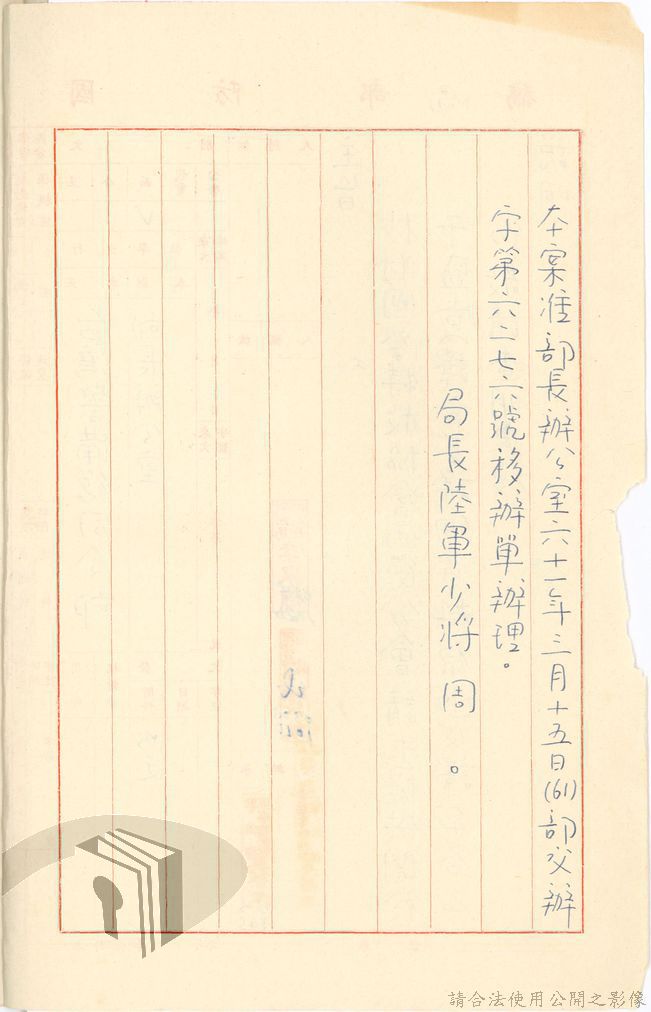 本案准部長辦公室六十一年三月十五日(61)部交辦
字第六二七六號移辦單辦理。
局長陸軍少將周 。
請合法使用公開之影像